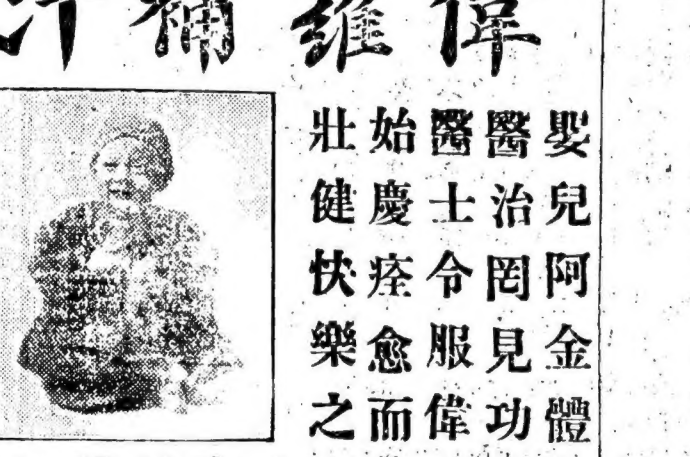 偉維補汁
嬰兒阿金體
醫治罔見功
醫士令服偉
始慶痊愈而
壯健快樂之